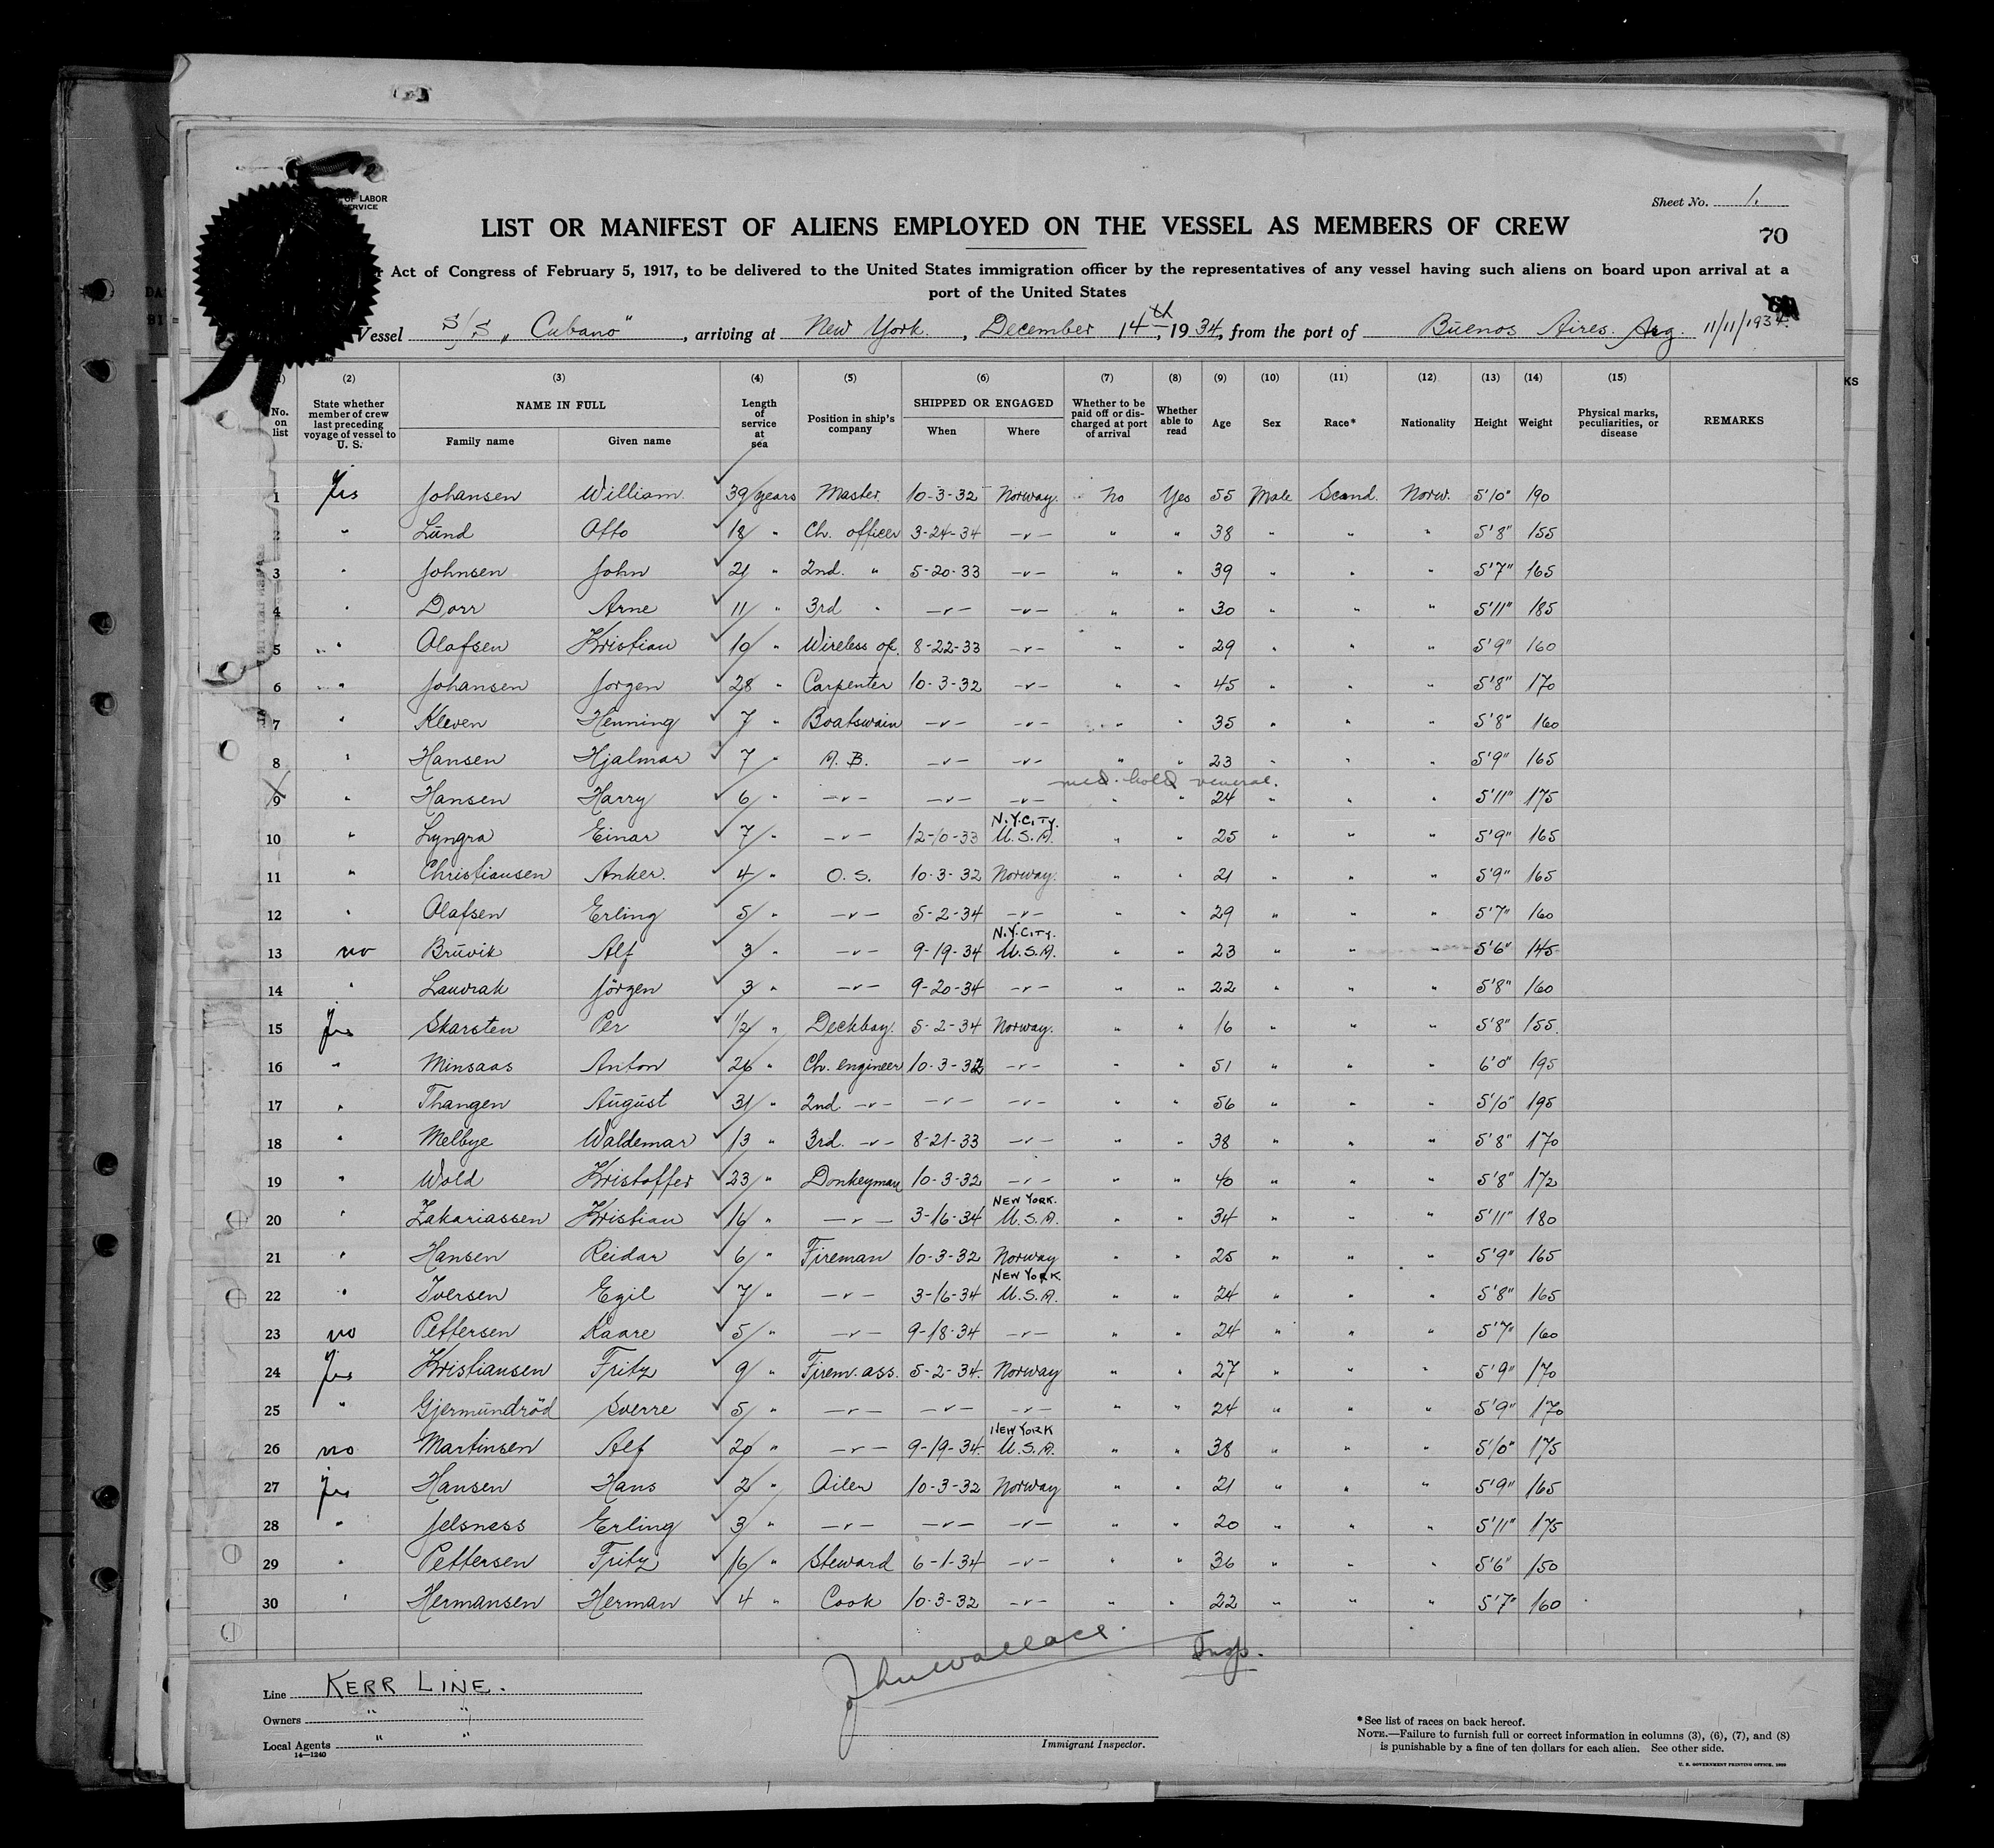 OF LABOR
SERVICE
Sheet No. 1.
LIST OR MANIFEST OF ALIENS EMPLOYED ON THE VESSEL AS MEMBERS OF CREW
70
Act of Congress of February 5, 1917, to be delivered to the United States immigration officer by the representatives of any vessel having such aliens on board upon arrival at a
port of the United States
Vessel S/S „Cubano", arriving at New York., December 14th, 1934, from the port of Buenos Aires. Arg. 11/11/1934.
(2) (3) (4) (5) (6) (7) (8) (9) (10) (11) (12) (13) (14) (15)
No. on list State whether member of crew last preceding voyage of vessel to U. S. NAME IN FULL Family name Given name Length of service at sea Position in ship's company SHIPPED OR ENGAGED When Where Whether to be paid off or discharged at port of arrival Whether able to read Age Sex Race* Nationality Height Weight Physical marks, peculiarities, or disease REMARKS
1 Yes Johansen William. 39 years Master. 10-3-32 Norway. No Yes 55 Male Scand. Norw. 5'10" 190
2 " Lund Otto 18 " Ch. officer 3-24-34 -"- " " 38 " " " 5'8" 155
3 " Johnsen John 21 " 2nd. " 5-20-33 -"- " " 39 " " " 5'7" 165
4 " Dorr Arne 11 " 3rd " -"- -"- " " 30 " " " 5'11" 185
5 " Olafsen Kristian 10 " Wireless op. 8-22-33 -"- " " 29 " " " 5'9" 160
6 " Johansen Jorgen 28 " Carpenter 10-3-32 -"- " " 45 " " " 5'8" 170
7 " Kleven Henning 7 " Boatswain -"- -"- " " 35 " " " 5'8" 160
8 " Hansen Hjalmar 7 " A. B. -"- -"- " " 23 " " " 5'9" 165
med. hold venereal.
9 " Hansen Harry 6 " -"- -"- -"- " " 24 " " " 5'11" 175
10 " Lyngra Einar 7 " -"- 12-10-33 N.Y.CITY. U.S.A. " " 25 " " " 5'9" 165
11 " Christiansen Anker. 4 " O. S. 10-3-32 Norway. " " 21 " " " 5'9" 165
12 " Olafsen Erling 5 " -"- 5-2-34 -"- " " 29 " " " 5'7" 160
13 no Bruvik Alf 3 " -"- 9-19-34 N.Y.CITY. U.S.A. " " 23 " " " 5'6" 145
14 " Laudrak Jörgen 3 " -"- 9-20-34 -"- " " 22 " " " 5'8" 160
15 Yes Skarsten Per 1/2 " Deckboy. 5-2-34 Norway. " " 16 " " " 5'8" 155.
16 " Minsaas Anton 26 " Ch. engineer 10-3-32 -"- " " 51 " " " 6'0" 195
17 " Thangen August 31 " 2nd -"- -"- -"- " " 56 " " " 5'10" 195
18 " Melbye Waldemar 13 " 3rd. -"- 8-21-33 -"- " " 38 " " " 5'8" 170
19 " Wold Kristoffer 23 " Donkeyman 10-3-32 -"- " " 40 " " " 5'8" 172
20 " Zakariassen Kristian 16 " -"- 3-16-34 NEW YORK. U.S.A. " " 34 " " " 5'11" 180
21 " Hansen Reidar 6 " Fireman 10-3-32 Norway " " 25 " " " 5'9" 165
22 " Iversen Egil 7 " -"- 3-16-34 NEW YORK U.S.A. " " 24 " " " 5'8" 165
23 no Pettersen Kaare 5 " -"- 9-18-34 -"- " " 24 " " " 5'7" 160
24 Yes Kristiansen Fritz 9 " Firem. ass. 5-2-34. Norway " " 27 " " " 5'9" 170
25 " Gjermundröd Sverre 5 " -"- -"- -"- " " 24 " " " 5'9" 170
26 no Martinsen Alf 20 " -"- 9-19-34. NEW YORK U.S.A. " " 38 " " " 5'10" 175
27 Yes Hansen Hans 2 " Oiler 10-3-32 Norway " " 21 " " " 5'9" 165
28 " Jelsness Erling 3 " -"- -"- -"- " " 20 " " " 5'11" 175
29 " Pettersen Fritz 16 " Steward 6-1-34 -"- " " 36 " " " 5'6" 150
30 " Hermansen Herman 4 " Cook 10-3-32 -"- " " 22 " " " 5'7" 160
John Wallace. Insp.
Line KERR LINE.
Owners " "
Local Agents " "
14—1240
Immigrant Inspector.
* See list of races on back hereof.
NOTE.—Failure to furnish full or correct information in columns (3), (6), (7), and (8)
is punishable by a fine of ten dollars for each alien. See other side.
U. S. GOVERNMENT PRINTING OFFICE